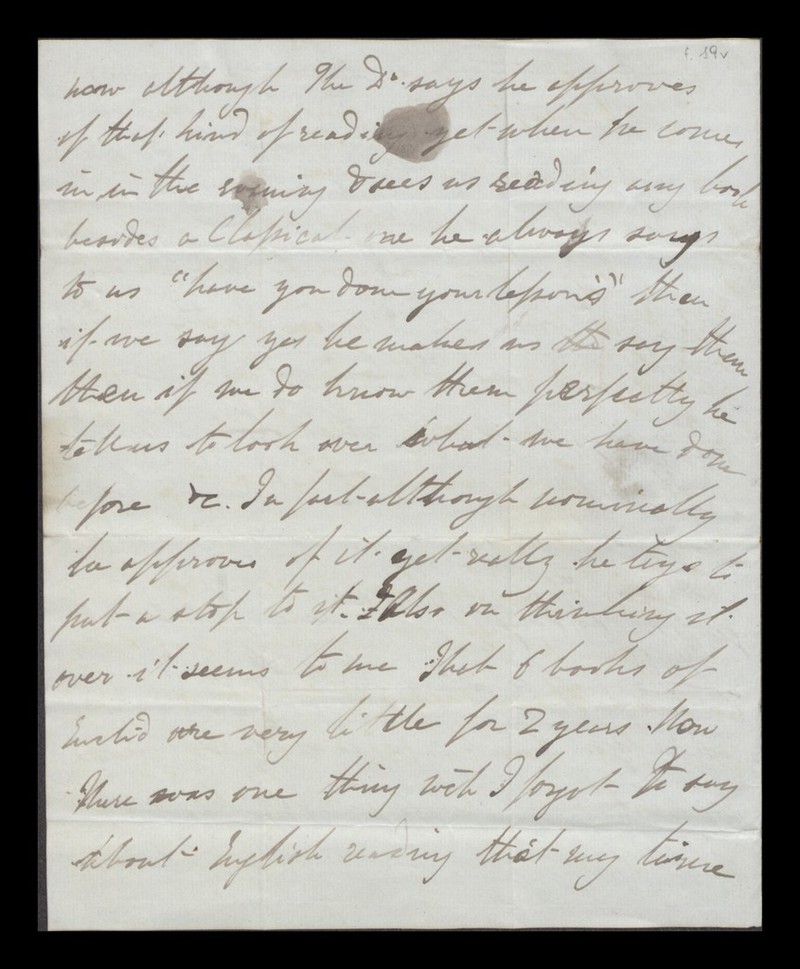 f. 19v
now although The Dr. says he approves
of that kind of reading yet when he comes
in in the evening & sees us reading any book
besides a Classical one he always says
to us "have you done your lessons" then
if we say yes he makes us the say them
then if we do know them perfectly he
tells us to look over what we have done
before &c. In fact although nominally
he approves of it yet really he trys to
put a stop to it. Also on thinking it
over it seems to me That 6 books of
Euclid are very little for 2 years. Now
There was one thing wch I forgot To say
about English reading that my time